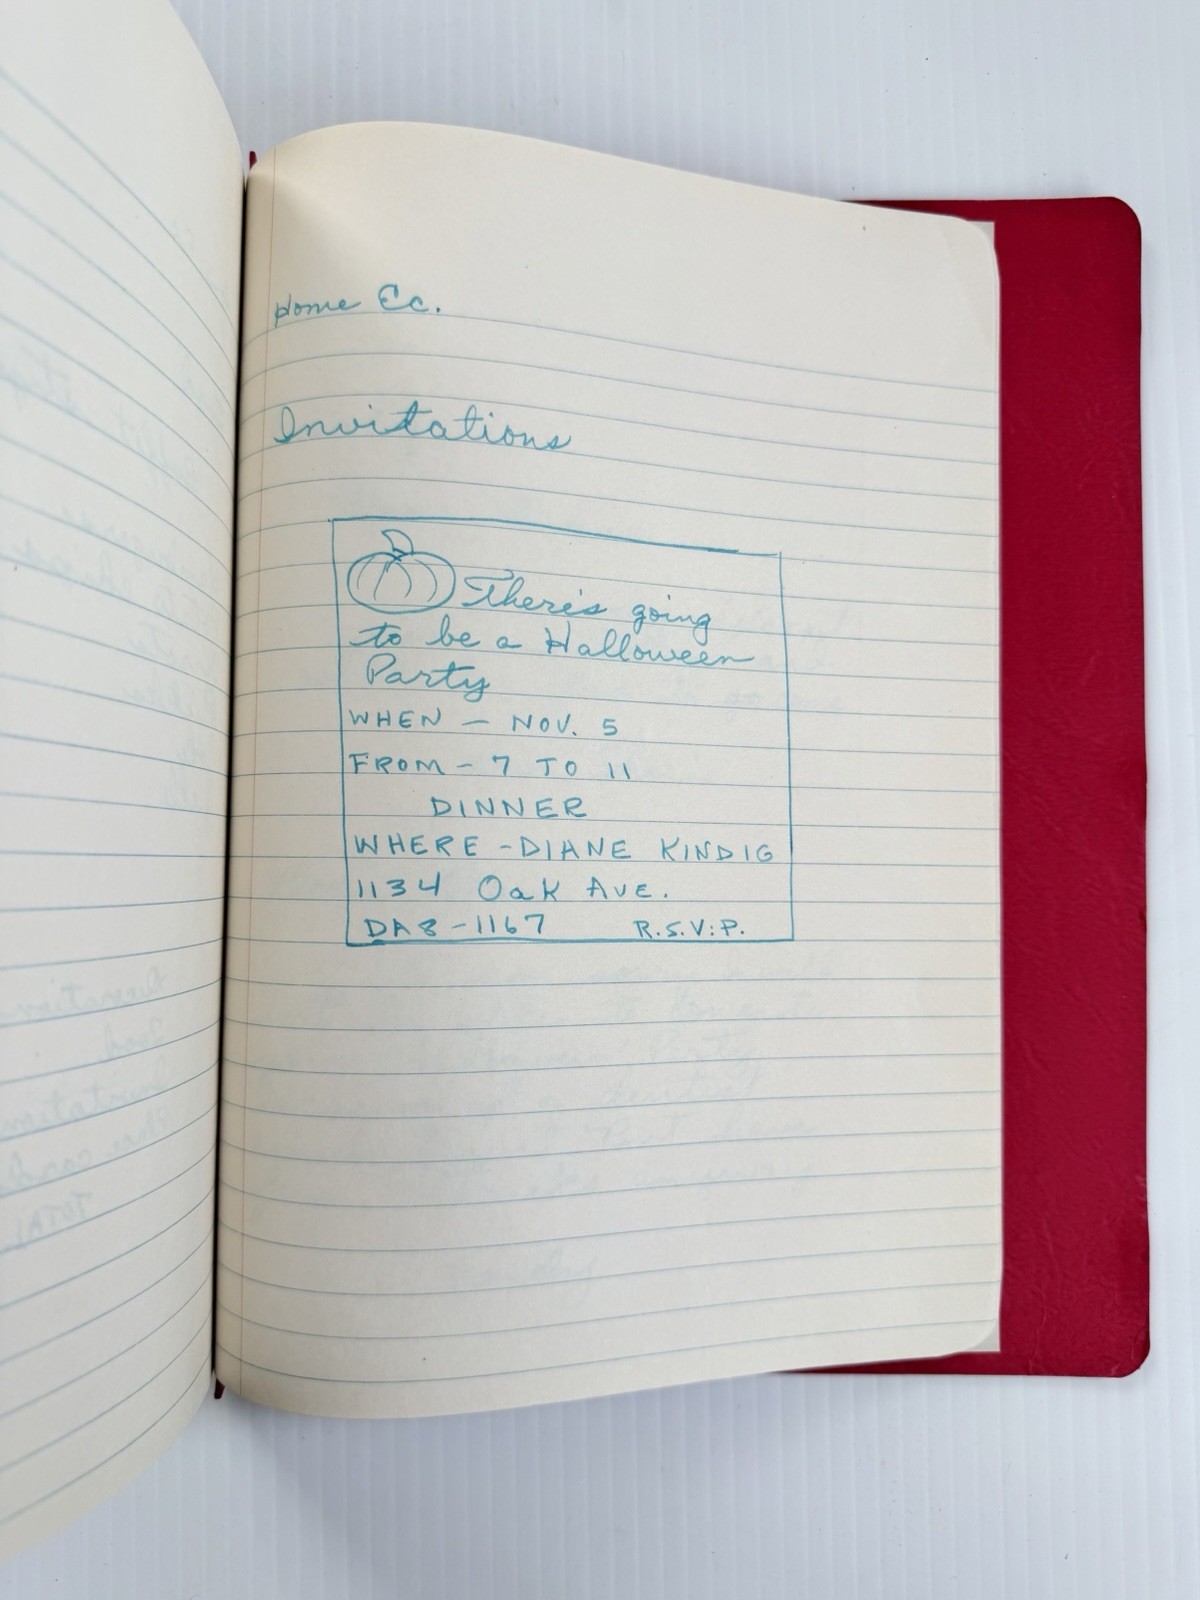 Home Ec.
Invitations
There's going
to be a Halloween
Party
WHEN - NOV. 5
FROM - 7 TO 11
DINNER
WHERE - DIANE KINDIG
1134 Oak Ave.
DA8-1167 R.S.V.P.